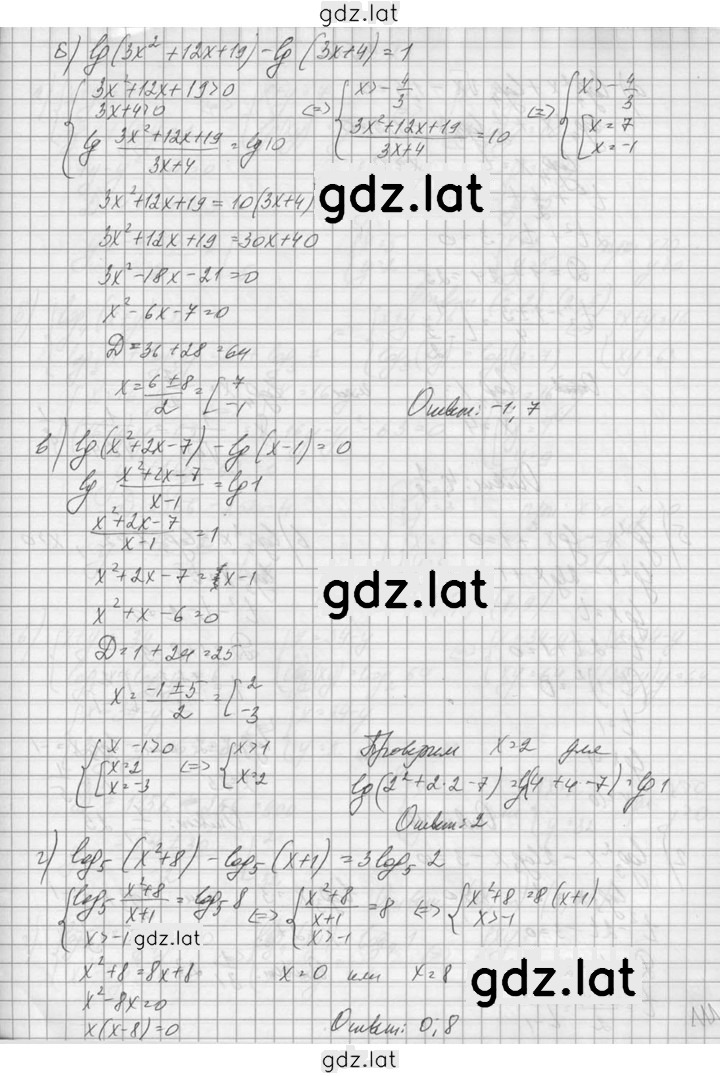 gdz.lat
б) lg(3x²+12x+19)-lg(3x+4)=1
{3x²+12x+19>0 3x+4>0 lg (3x²+12x+19)/(3x+4) = lg10 <=> {x>-4/3 (3x²+12x+19)/(3x+4)=10 <=> {x>-4/3 [x=7 x=-1
3x²+12x+19=10(3x+4)
gdz.lat
3x²+12x+19=30x+40
3x²-18x-21=0
x²-6x-7=0
D=36+28=64
x=(6±8)/2=[7 -1
Ответ: -1; 7
в) lg(x²+2x-7)-lg(x-1)=0
lg (x²+2x-7)/(x-1) = lg1
(x²+2x-7)/(x-1)=1
x²+2x-7=x-1
gdz.lat
x²+x-6=0
D=1+24=25
x=(-1±5)/2=[2 -3
{x-1>0 [x=2 x=-3 <=> {x>1 x=2
Проверим x=2 для
lg(2²+2·2-7)=lg(4+4-7)=lg1
Ответ: 2
г) log₅(x²+8)-log₅(x+1)=3log₅2
{log₅ (x²+8)/(x+1)=log₅8 x>-1 <=> {(x²+8)/(x+1)=8 x>-1 <=> {x²+8=8(x+1) x>-1
gdz.lat
x²+8=8x+8 x=0 или x=8
gdz.lat
x²-8x=0
x(x-8)=0 Ответ: 0; 8
gdz.lat